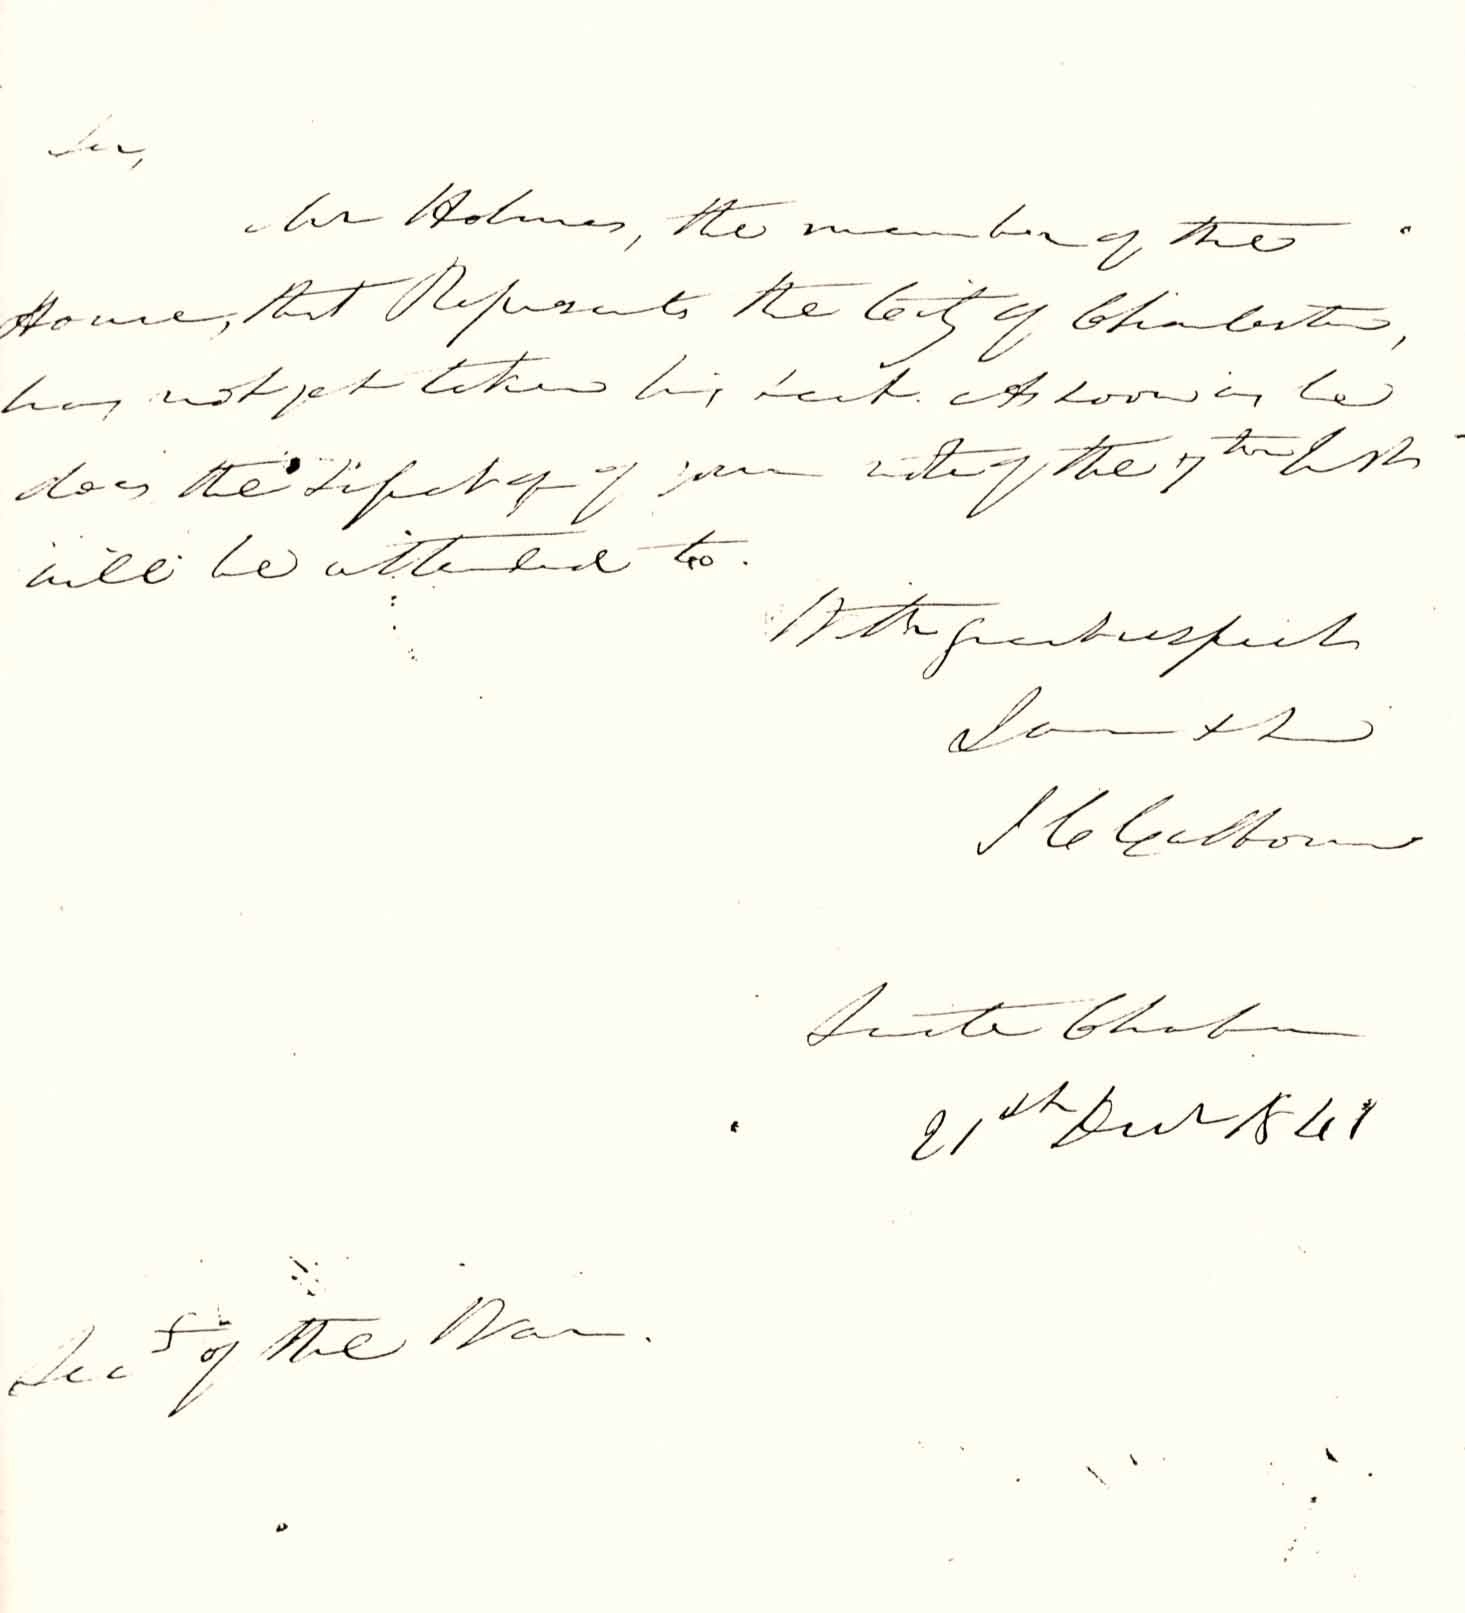 Sir,
Mr Holmes, the member of the
House, that Represents the City of Charleston,
has not yet taken his seat. As soon as he
does the subject of your note of the 7th Inst
will be attended to.
With great respect
I am &
J C Calhoun
Senate Chamber
21th Decr 1841
Secy of the War.